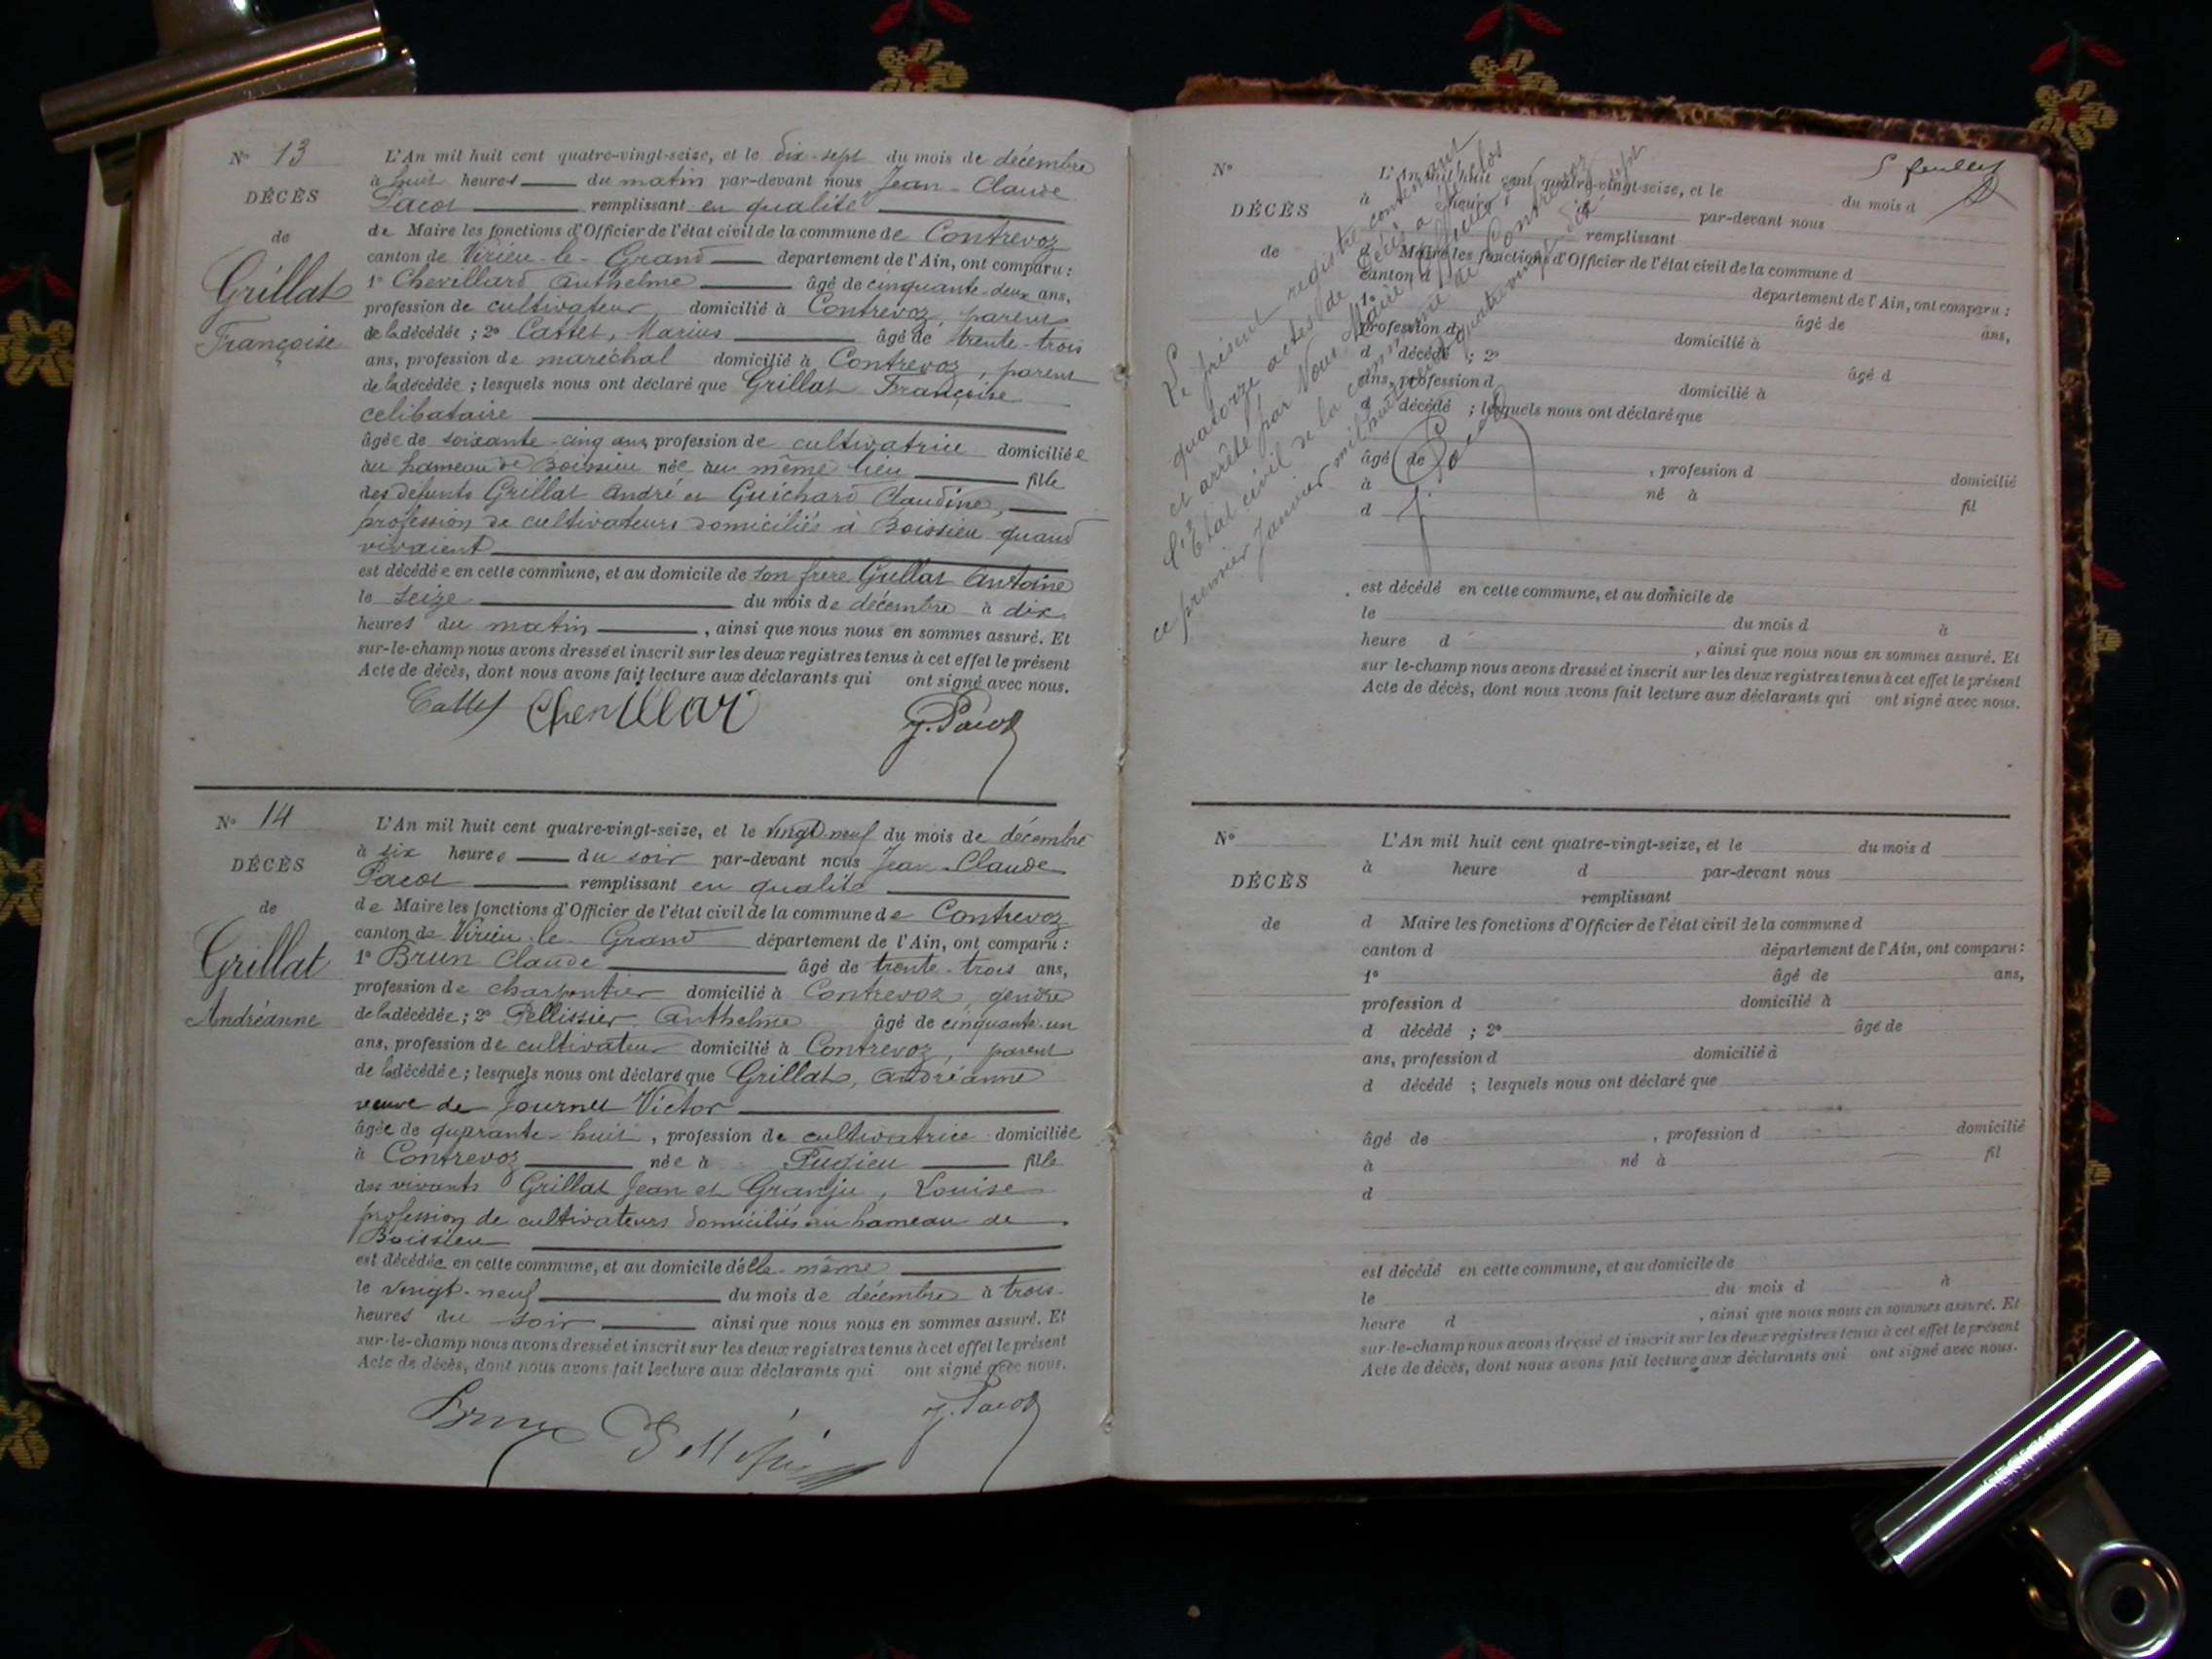 N° 13
DÉCÈS
de
Grillat
Françoise
L'An mil huit cent quatre-vingt-seize, et le dix-sept du mois de décembre
à huit heures du matin par-devant nous Jean-Claude
Pacot remplissant en qualité
de Maire les fonctions d'Officier de l'état civil de la commune de Contrevoz
canton de Virieu-le-Grand département de l'Ain, ont comparu :
1° Chevillard Anthelme âgé de cinquante-deux ans,
profession de cultivateur domicilié à Contrevoz, parent
de la décédée ; 2° Cattet, Marius âgé de trente-trois
ans, profession de maréchal domicilié à Contrevoz, parent
de la décédée ; lesquels nous ont déclaré que Grillat Françoise
celibataire
âgée de soixante-cinq ans, profession de cultivatrice domiciliée
au hameau de Boissieu née au même lieu fille
des défunts Grillat André et Guichard Claudine,
profession de cultivateurs domiciliés à Boissieu quand
vivaient
est décédée en cette commune, et au domicile de son frère Grillat Antoine
le seize du mois de décembre à dix
heures du matin, ainsi que nous nous en sommes assuré. Et
sur-le-champ nous avons dressé et inscrit sur les deux registres tenus à cet effet le présent
Acte de décès, dont nous avons fait lecture aux déclarants qui ont signé avec nous.
Cattet Chevillard J. Pacot
N° 14
DÉCÈS
de
Grillat
Andréanne
L'An mil huit cent quatre-vingt-seize, et le vingt-neuf du mois de décembre
à six heures du soir par-devant nous Jean-Claude
Pacot remplissant en qualité
de Maire les fonctions d'Officier de l'état civil de la commune de Contrevoz
canton de Virieu-le-Grand département de l'Ain, ont comparu :
1° Brun Claude âgé de trente-trois ans,
profession de charpentier domicilié à Contrevoz, gendre
de la décédée ; 2° Pellissier Anthelme âgé de cinquante-un
ans, profession de cultivateur domicilié à Contrevoz, parent
de la décédée ; lesquels nous ont déclaré que Grillat, Andréanne
veuve de Journet Victor
âgée de quarante-huit, profession de cultivatrice domiciliée
à Contrevoz née à Pugieu fille
des vivants Grillat Jean et Granju, Louise
profession de cultivateurs domiciliés au hameau de
Boissieu
est décédée en cette commune, et au domicile d'elle-même
le vingt-neuf du mois de décembre à trois
heures du soir ainsi que nous nous en sommes assuré. Et
sur-le-champ nous avons dressé et inscrit sur les deux registres tenus à cet effet le présent
Acte de décès, dont nous avons fait lecture aux déclarants qui ont signé avec nous.
Brun Pellissier J. Pacot
5 feuillet
Le présent registre contenant
quatorze actes de décès a été clos
et arrêté par Nous, Maire, officier de
l'Etat civil de la commune de Contrevoz
ce premier Janvier mil huit cent quatre vingt dix-sept
J. Pacot
N°
DÉCÈS
de
L'An mil huit cent quatre-vingt-seize, et le du mois d
à heure d par-devant nous
remplissant
d Maire les fonctions d'Officier de l'état civil de la commune d
canton d département de l'Ain, ont comparu :
1° âgé de ans,
profession d domicilié à
d décédé ; 2° âgé d
ans, profession d domicilié à
d décédé ; lesquels nous ont déclaré que
âgé de , profession d domicilié
à né à fil
d
est décédé en cette commune, et au domicile de
le du mois d à
heure d , ainsi que nous nous en sommes assuré. Et
sur-le-champ nous avons dressé et inscrit sur les deux registres tenus à cet effet le présent
Acte de décès, dont nous avons fait lecture aux déclarants qui ont signé avec nous.
N°
DÉCÈS
de
L'An mil huit cent quatre-vingt-seize, et le du mois d
à heure d par-devant nous
remplissant
d Maire les fonctions d'Officier de l'état civil de la commune d
canton d département de l'Ain, ont comparu :
1° âgé de ans,
profession d domicilié à
d décédé ; 2° âgé de
ans, profession d domicilié à
d décédé ; lesquels nous ont déclaré que
âgé de , profession d domicilié
à né à fil
d
est décédé en cette commune, et au domicile de
le du mois d à
heure d , ainsi que nous nous en sommes assuré. Et
sur-le-champ nous avons dressé et inscrit sur les deux registres tenus à cet effet le présent
Acte de décès, dont nous avons fait lecture aux déclarants qui ont signé avec nous.